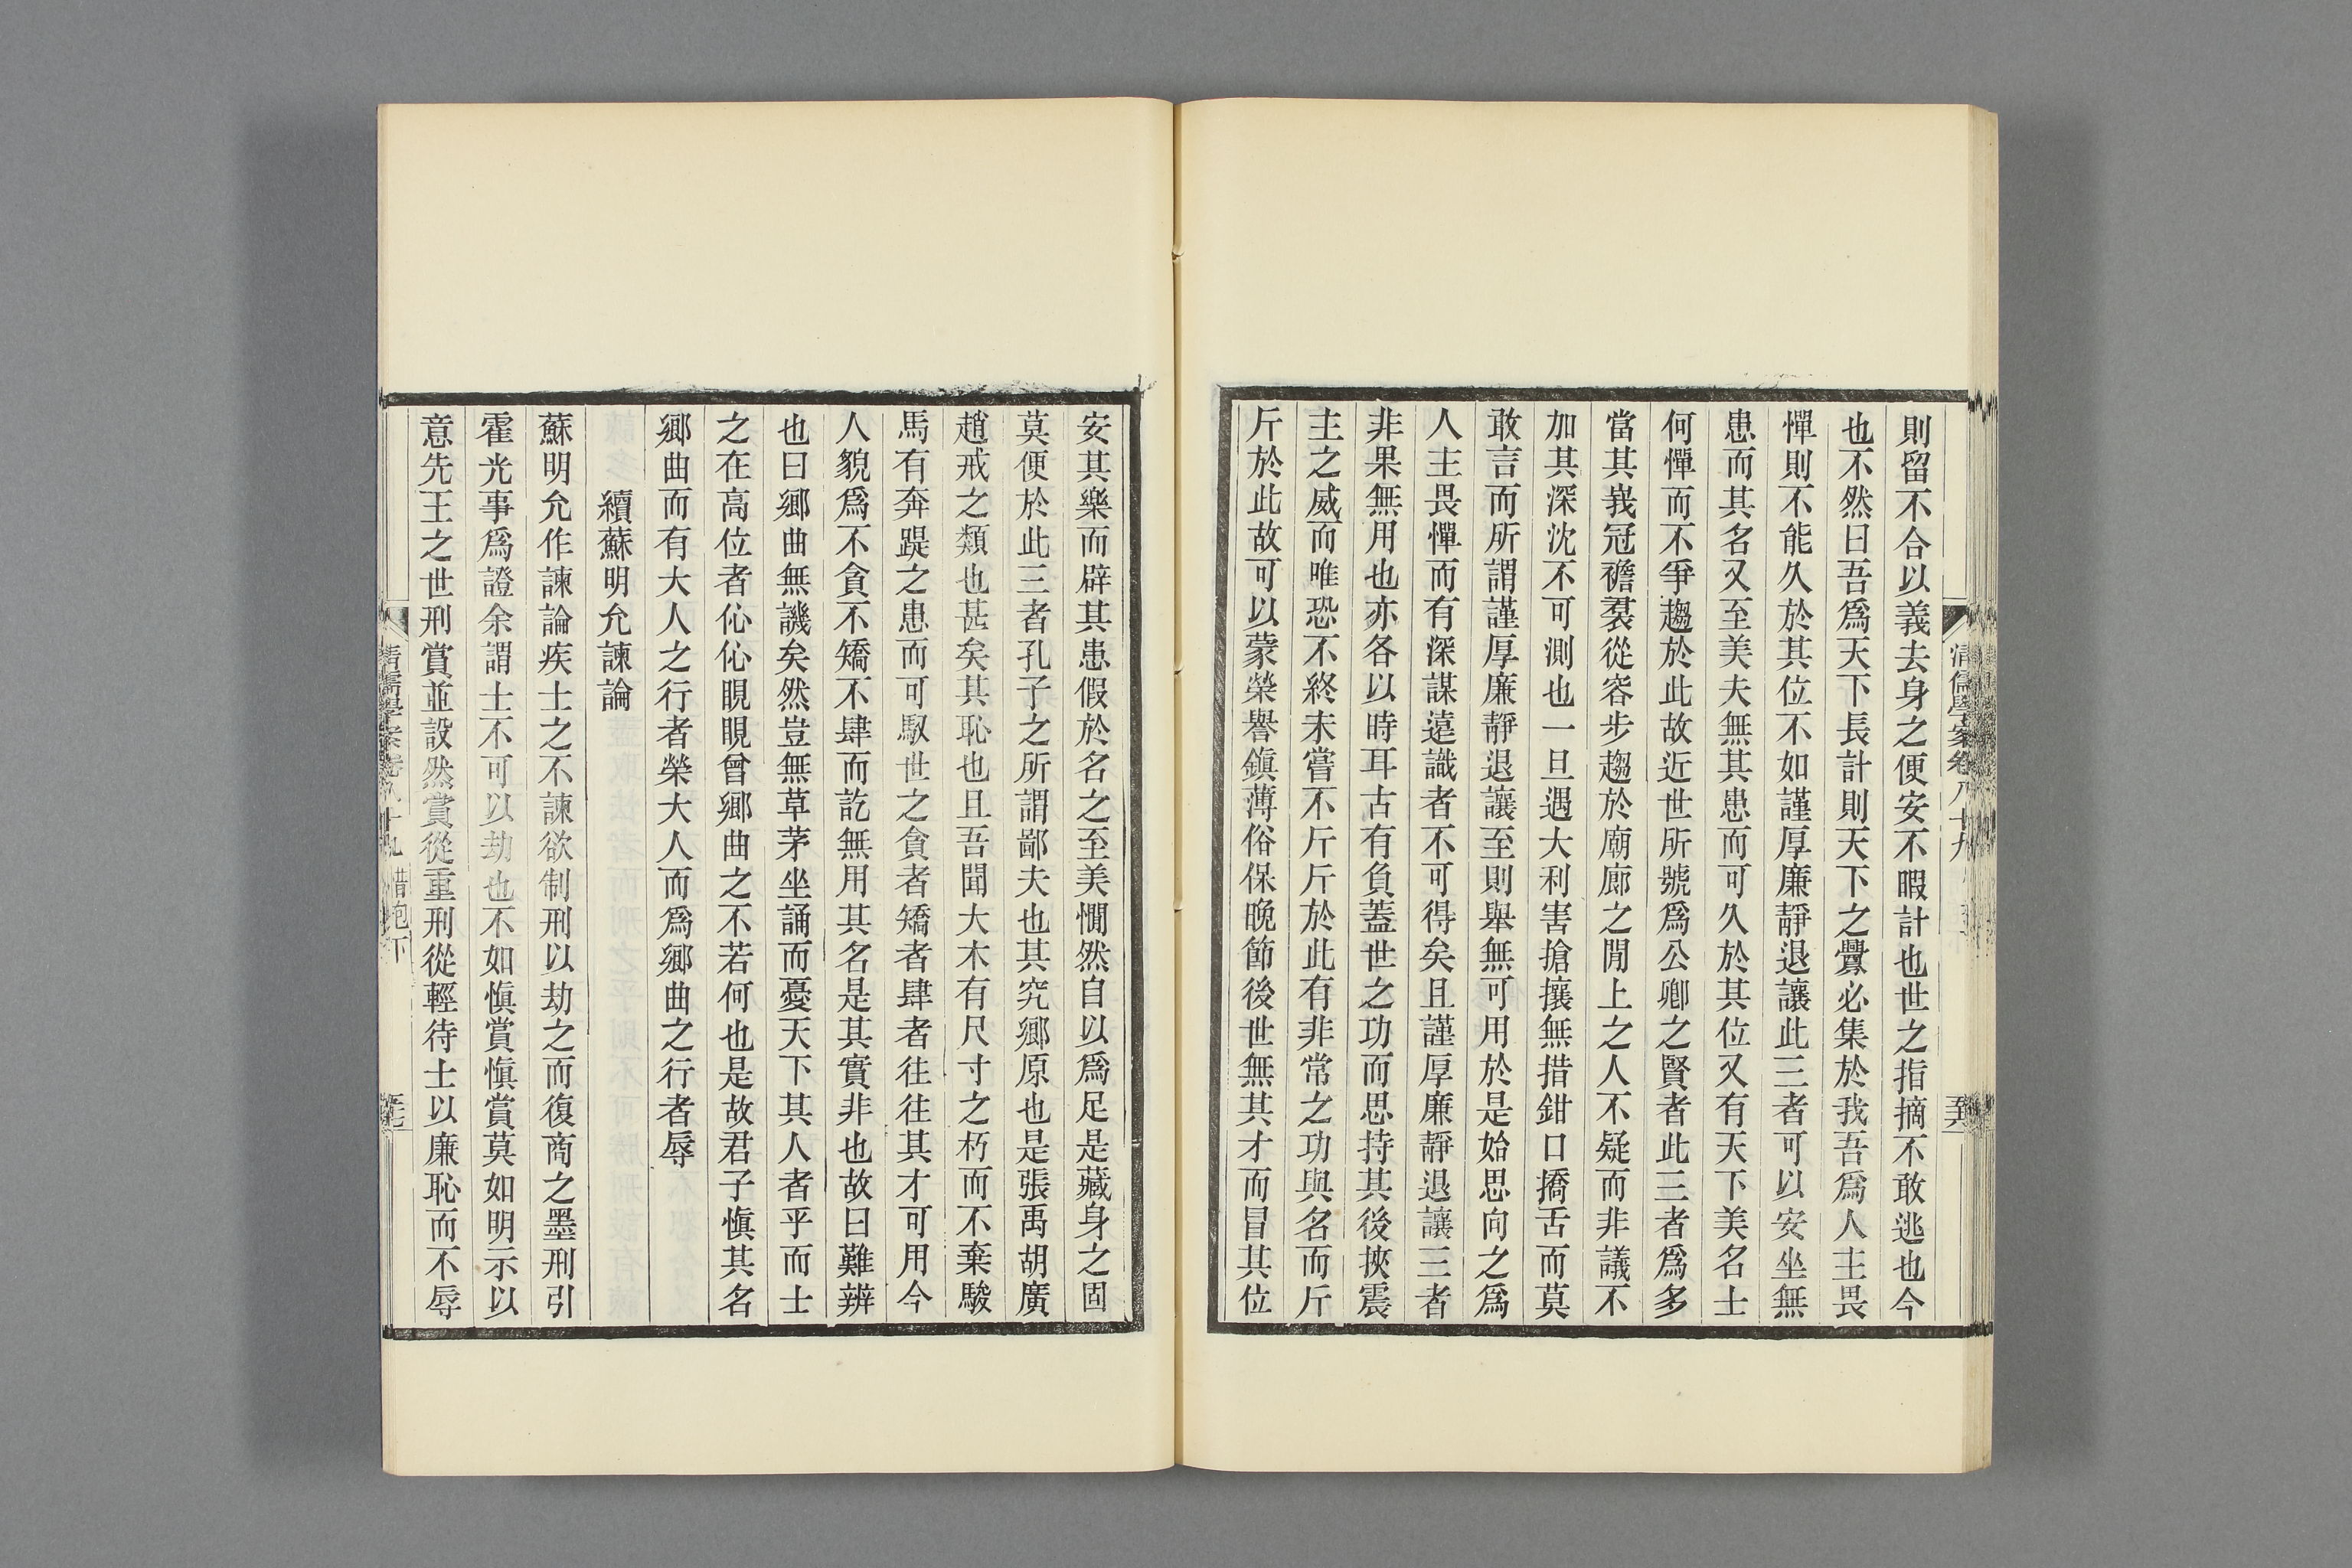 則留不合以義去身之便安不暇計也世之指摘不敢逃也今
也不然曰吾爲天下長計則天下之釁必集於我吾爲人主畏
憚則不能久於其位不如謹厚廉靜退讓此三者可以安坐無
患而其名又至美夫無其患而可久於其位又有天下美名士
何憚而不爭趨於此故近世所號爲公卿之賢者此三者爲多
當其峩冠襜裘從容步趨於廟廊之閒上之人不疑而非議不
加其深沈不可測也一旦遇大利害搶攘無措鉗口撟舌而莫
敢言而所謂謹厚廉靜退讓至則舉無可用於是始思向之爲
人主畏憚而有深謀遠識者不可得矣且謹厚廉靜退讓三者
非果無用也亦各以時耳古有負蓋世之功而思持其後挾震
主之威而唯恐不終未嘗不斤斤於此有非常之功與名而斤
斤於此故可以蒙榮譽鎭薄俗保晚節後世無其才而冒其位
安其樂而辟其患假於名之至美憪然自以爲足是藏身之固
莫便於此三者孔子之所謂鄙夫也其究鄉原也是張禹胡廣
趙戒之類也甚矣其恥也且吾聞大木有尺寸之朽而不棄駿
馬有奔踶之患而可馭世之貪者矯者肆者往往其才可用今
人貌爲不貪不矯不肆而訖無用其名是其實非也故曰難辨
也曰鄉曲無譏矣然豈無草茅坐誦而憂天下其人者乎而士
之在高位者伈伈睍睍曾鄉曲之不若何也是故君子愼其名
鄉曲而有大人之行者榮大人而爲鄉曲之行者辱
續蘇明允諫論
蘇明允作諫論疾士之不諫欲制刑以劫之而復商之墨刑引
霍光事爲證余謂士不可以劫也不如愼賞愼賞莫如明示以
意先王之世刑賞並設然賞從重刑從輕待士以廉恥而不辱
清儒學案卷八十九
五六
清儒學案卷八十九 惜抱下